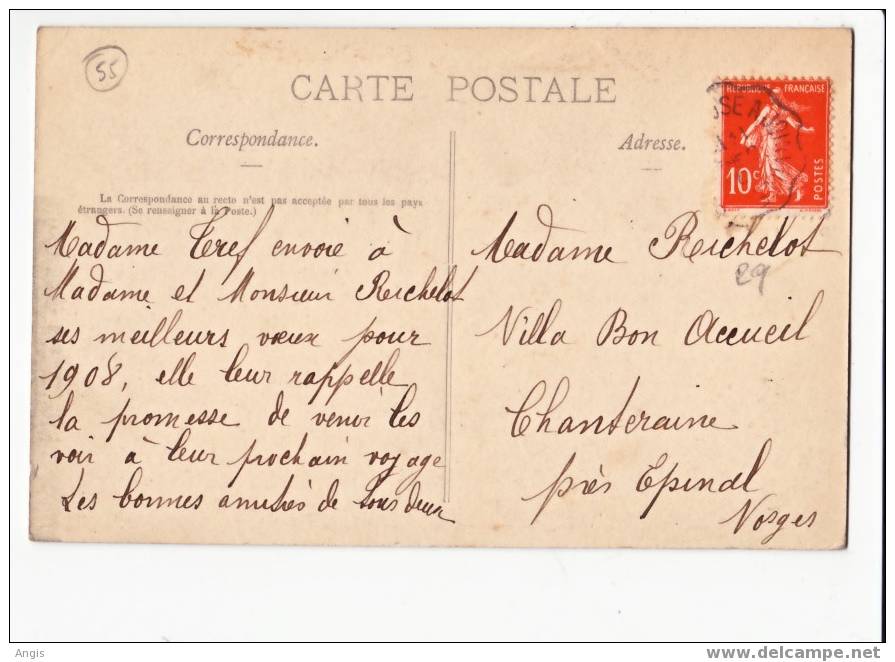 55
CARTE POSTALE
Correspondance.
La Correspondance au recto n'est pas acceptée par tous les pays
étrangers. (Se renseigner à la Poste.)
Madame Tref envoie à
Madame et Monsieur Richelot
ses meilleurs vœux pour
1908, elle leur rappelle
la promesse de venir les
voir à leur prochain voyage
Les bonnes amitiés de tous deux
Adresse.
REPUBLIQUE FRANÇAISE
10c
POSTES
Madame Richelot
29
Villa Bon Accueil
Chanteraine
près Epinal
Vosges
Angis
www.delcampe.net